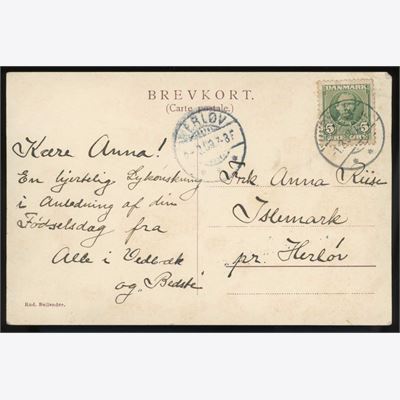 BREVKORT.
(Carte postale.)
DANMARK
5 ØRE 5
HERLØV
Kære Anna!
En hjertelig Lykønskning
i Anledning af din
Fødselsdag fra
Alle i Vedbæk
og "Bedste"
Frk. Anna Riise
Islemark
pr: Herløv
Rud. Bullender.